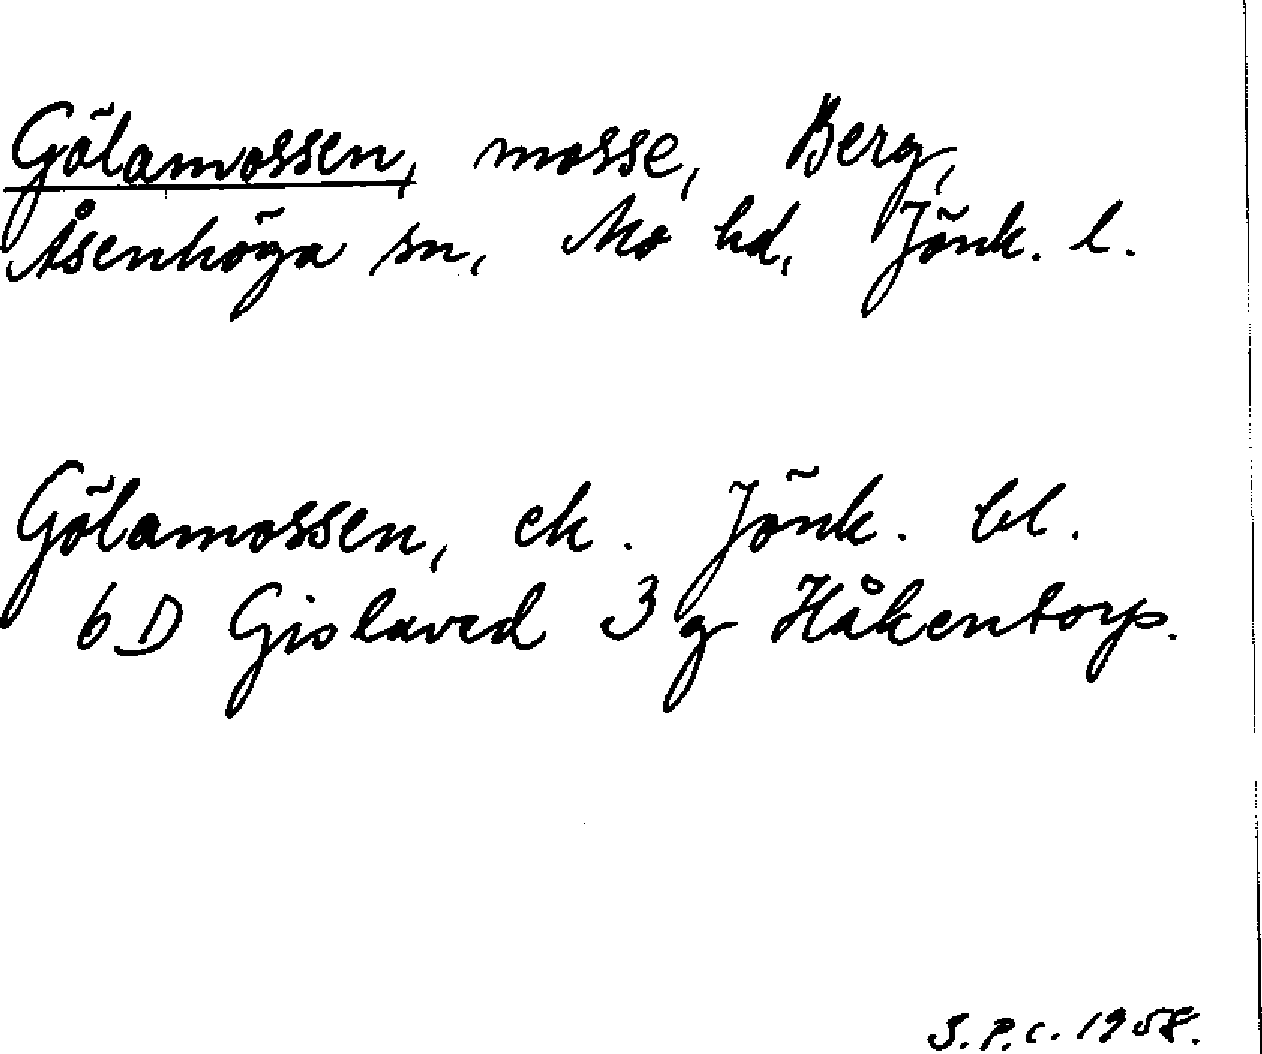 Gölamossen, mosse, Berg,
Åsenhöga sn, Mo hd, Jönk. l.
Gölamossen, ek. Jönk. bl.
6 D Gislaved 3 g Håkentorp.
S.P.C. 1958.